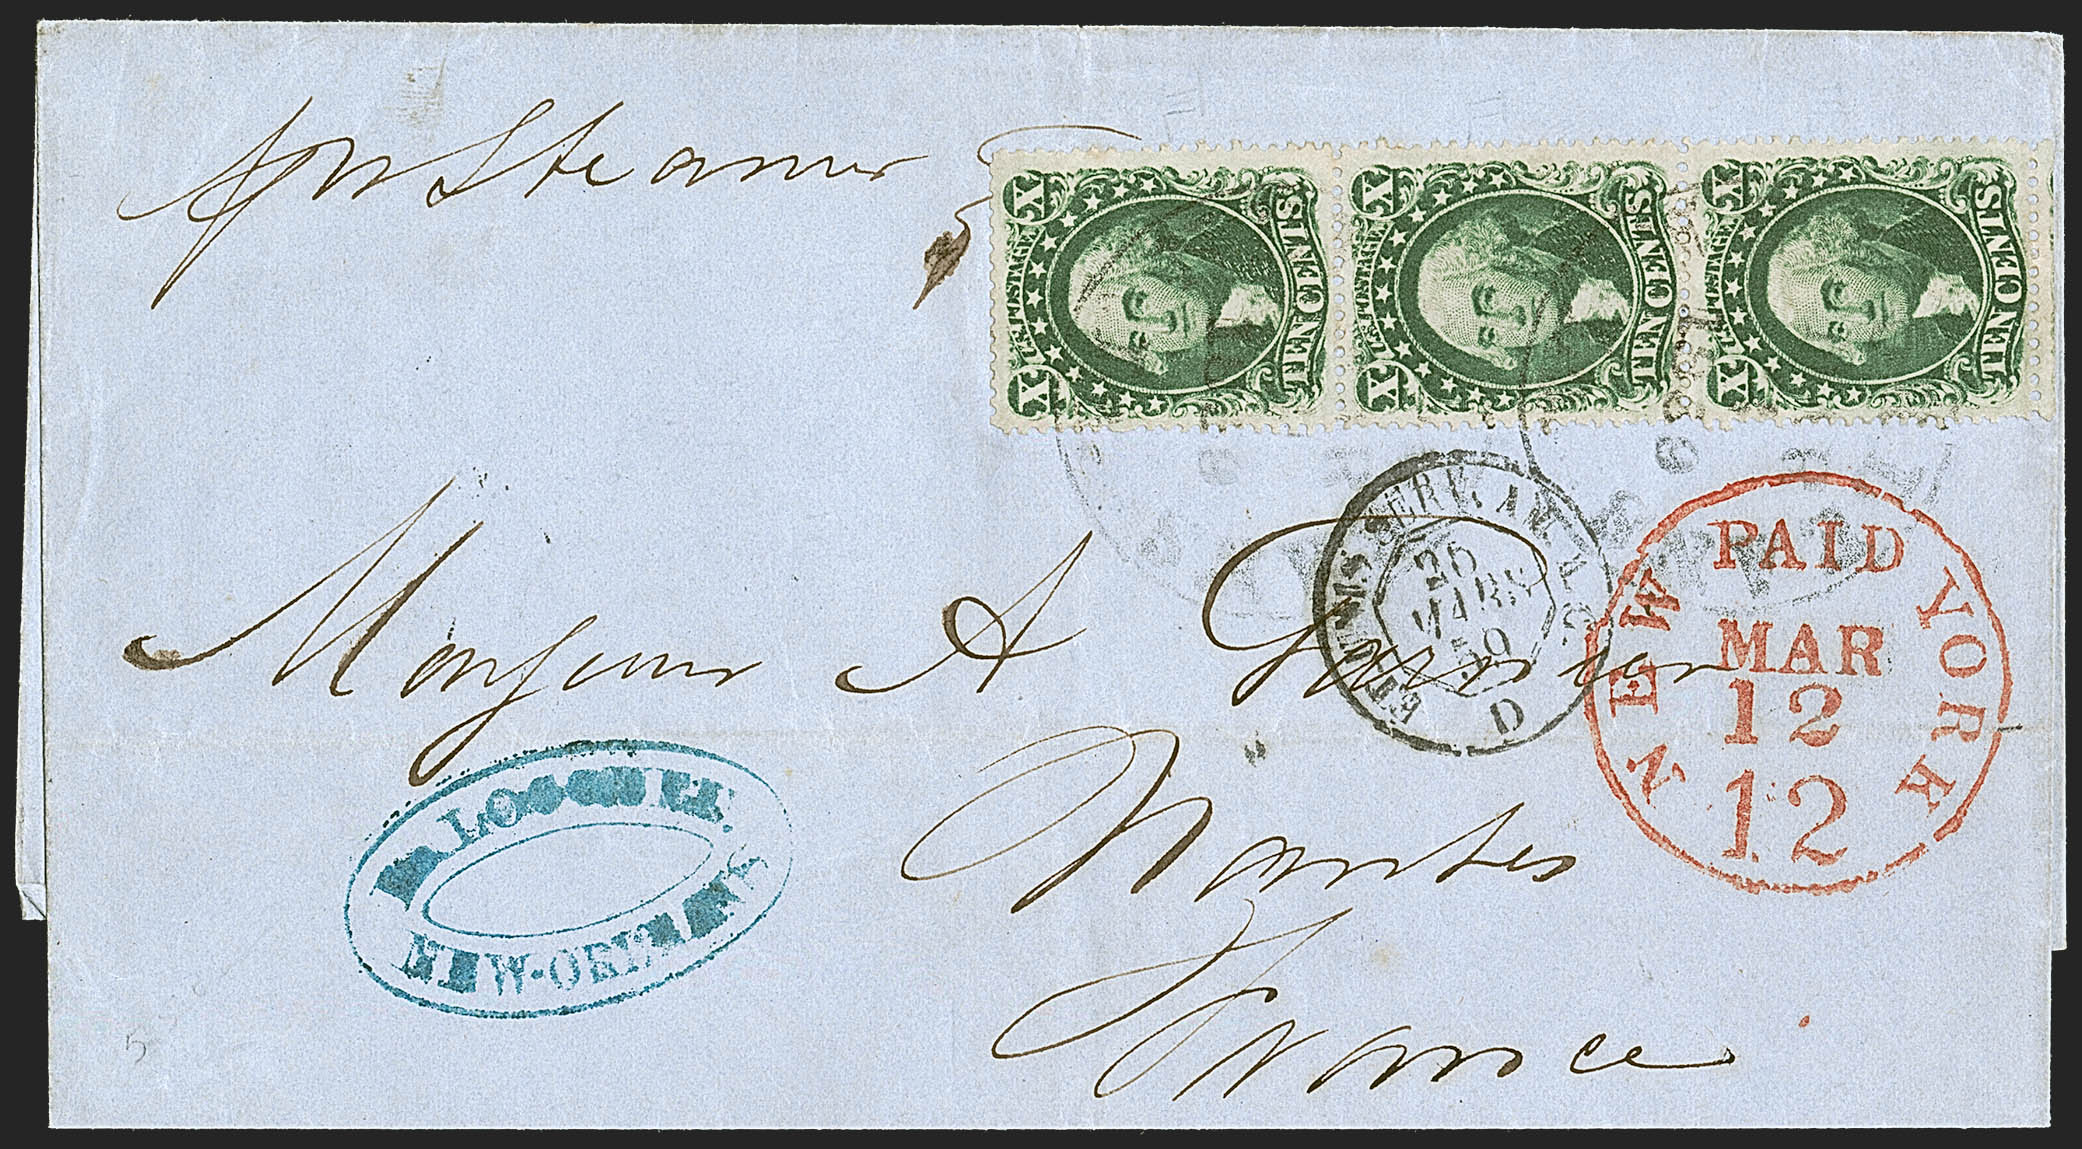 pr Steamer
X U.S. POSTAGE X
TEN CENTS
X U.S. POSTAGE X
TEN CENTS
X U.S. POSTAGE X
TEN CENTS
ETATS UNIS SERV. AM.
25
MARS
59
D
NEW YORK
PAID
MAR
12
12
Monsieur A
Nantes
France
NEW-ORLEANS
5